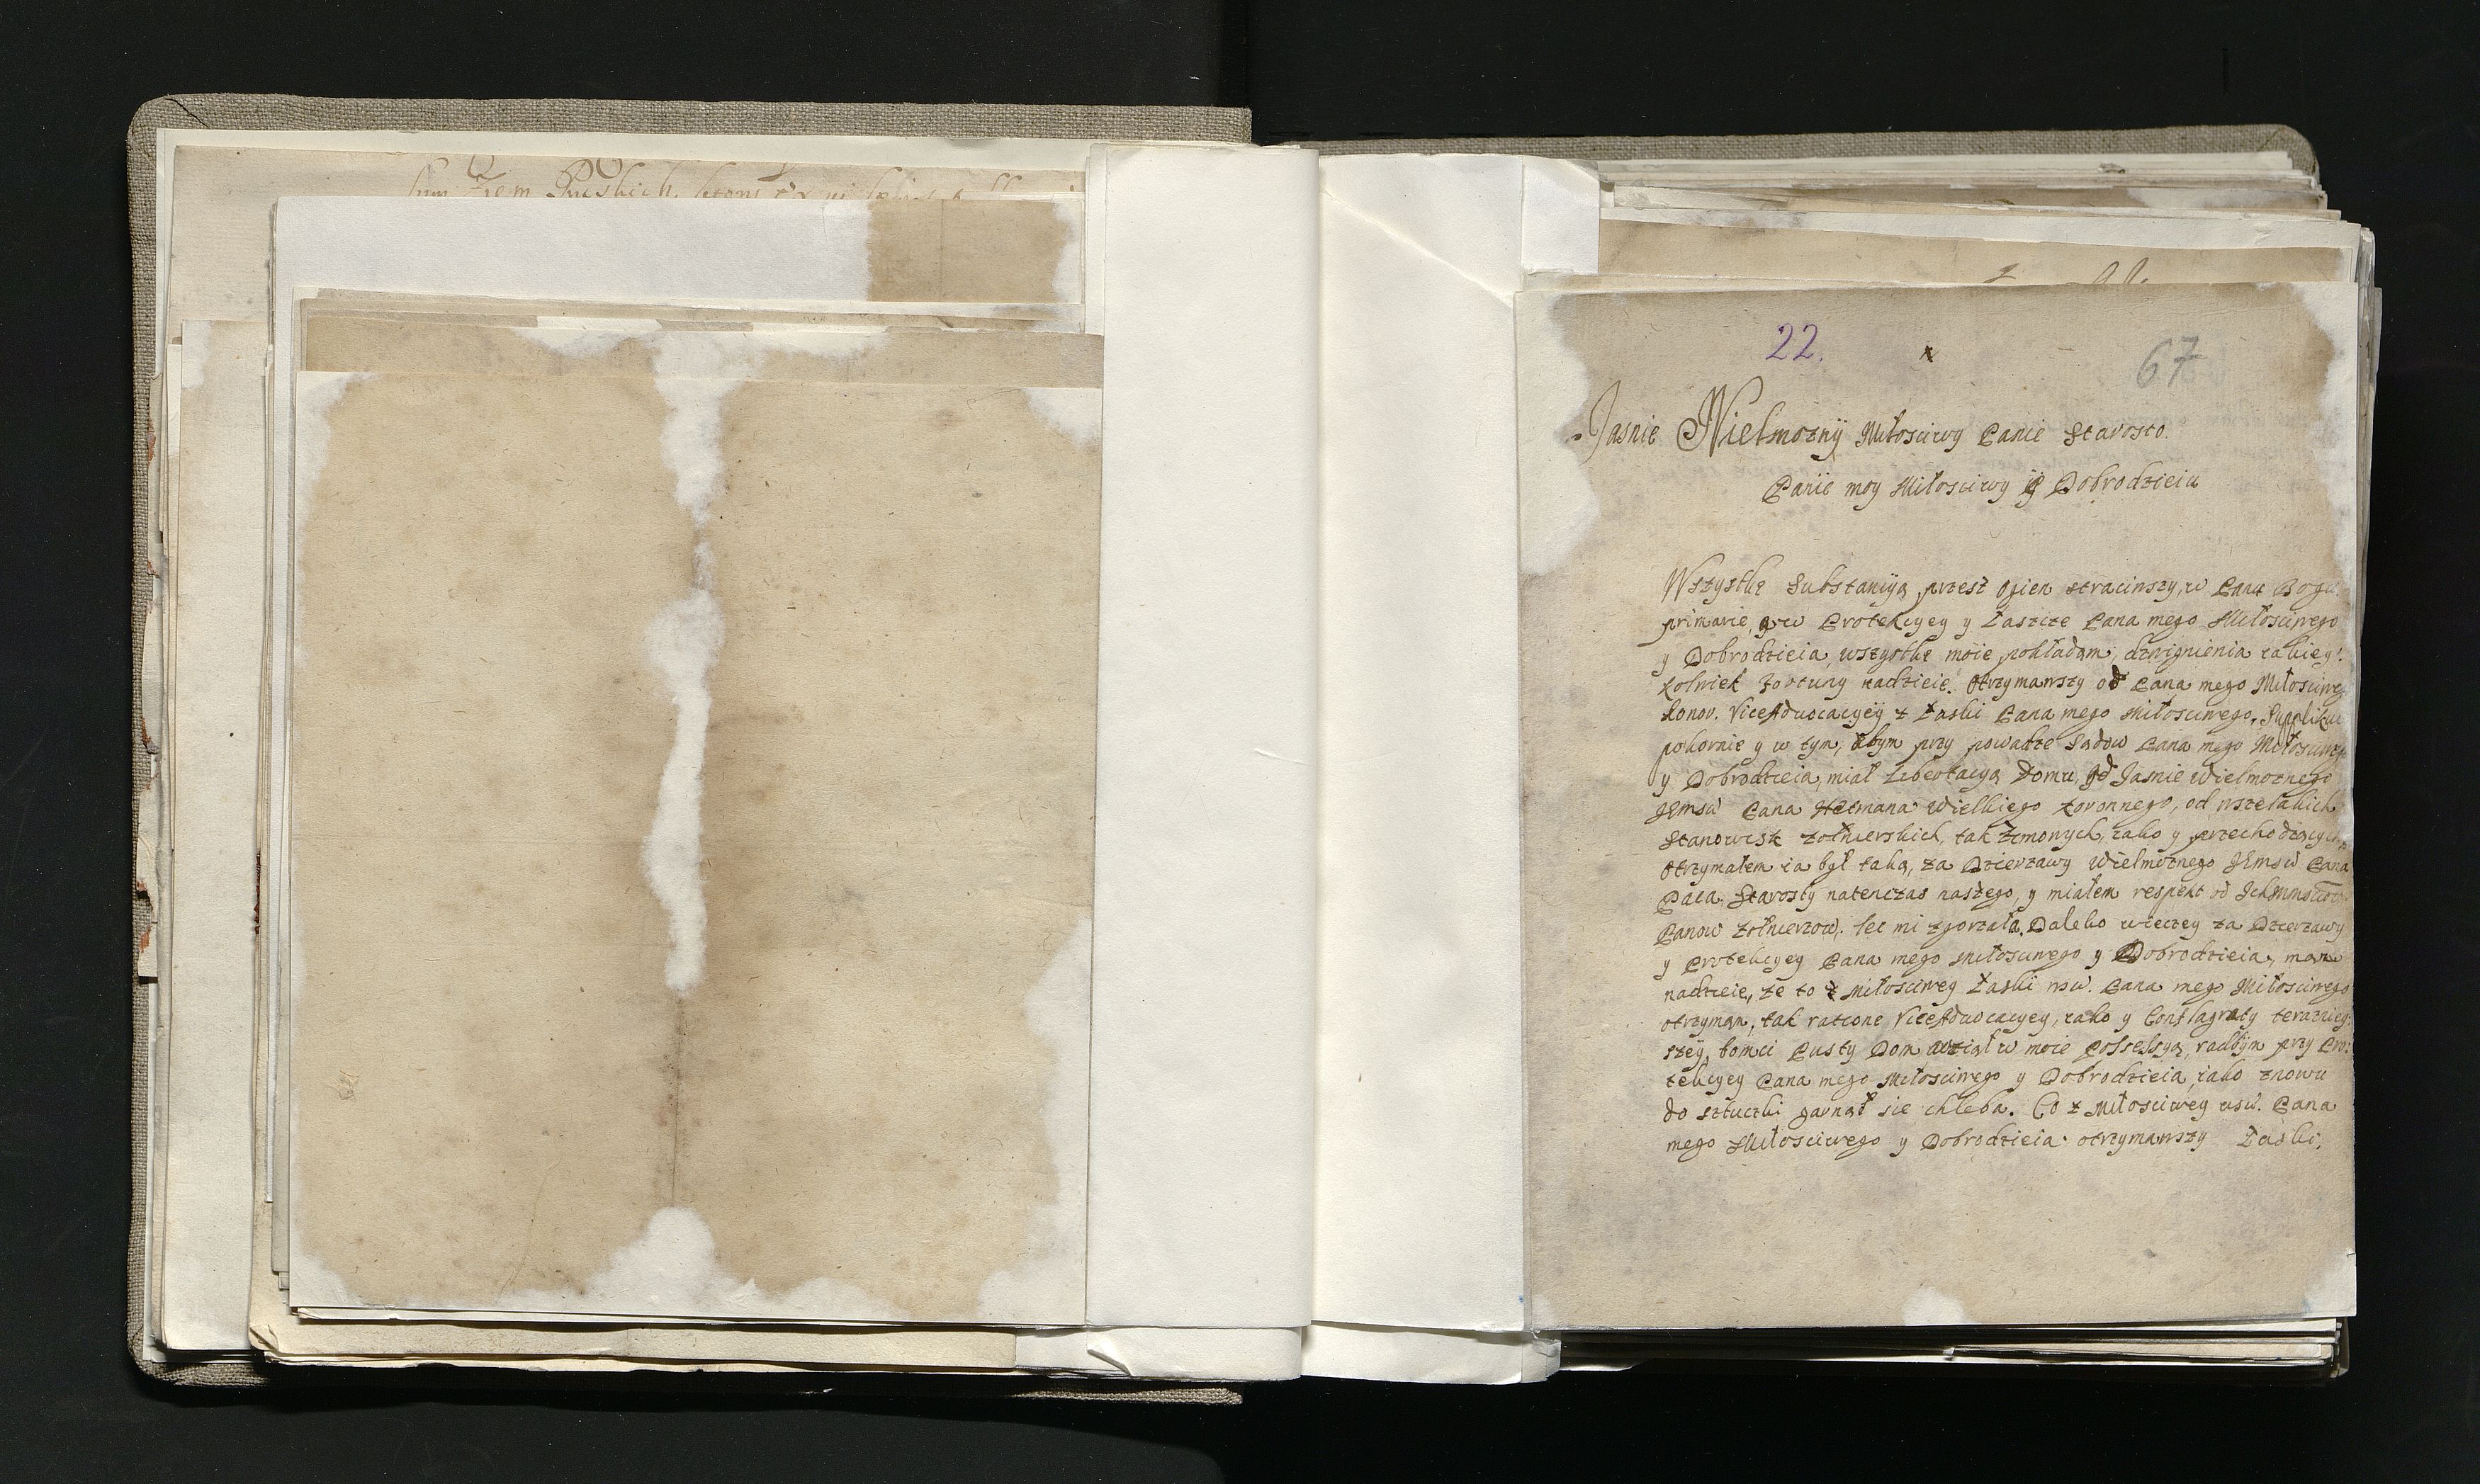 22.
67
Jasnie Wielmozny Miłosciwy Panie Starosto.
Panie moy Miłosciwy y Dobrodzieiu
Wszystkę Substancyą przesz ogien straciwszy, w Panu Bogu
primarie, y w Protekcyey y Łaszcze Pana mego Miłosciwego
y Dobrodzieia, wszystkę moie pokładam, dzwignienia iakiey:
kolwiek Fortuny nadzieię. Otrzymawszy od Pana mego Miłosciweg
honor. ViceAdvocacyey z Łaski Pana mego Miłosciwego, Supplikuię
pokornie y w tym, abym przy powadze Sądow Pana mego Miłosciweg
y Dobrodzieia, miał Libertacyą Domu, od Jasnie Wielmoznego
JEmsci Pana Hetmana Wielkiego Koronnego, od wszelakich
Stanowisk zołnierskich, tak Zimonych, iako y przechodzących
Otrzymałem ia był taką, za Dzierzawy Wielmoznego JEmsci Pana
Paca Starosty natenczas naszego, y miałem respekt od
Panow Zołnierzow. lec mi zgorzała. Daleko wieczey za Dzierzawy
y Protekcyey Pana mego Miłosciwego y Dobrodzieia, mam
nadzieie, ze to z Miłosciwey Łaski Pana mego Miłosciwego
otrzymam, tak ratione ViceAdvocacyey, iako y Conflagraty teraznieg:
szey, bomci Pusty Dom wział w moie Possessyą, radbym przy Pro:
tekcyey Pana mego Miłosciwego y Dobrodzieia, iako znowu
do sztuczki garnął sie chleba. Co z Miłosciwey Pana
mego Miłosciwego y Dobrodzieia otrzymawszy Łaski,